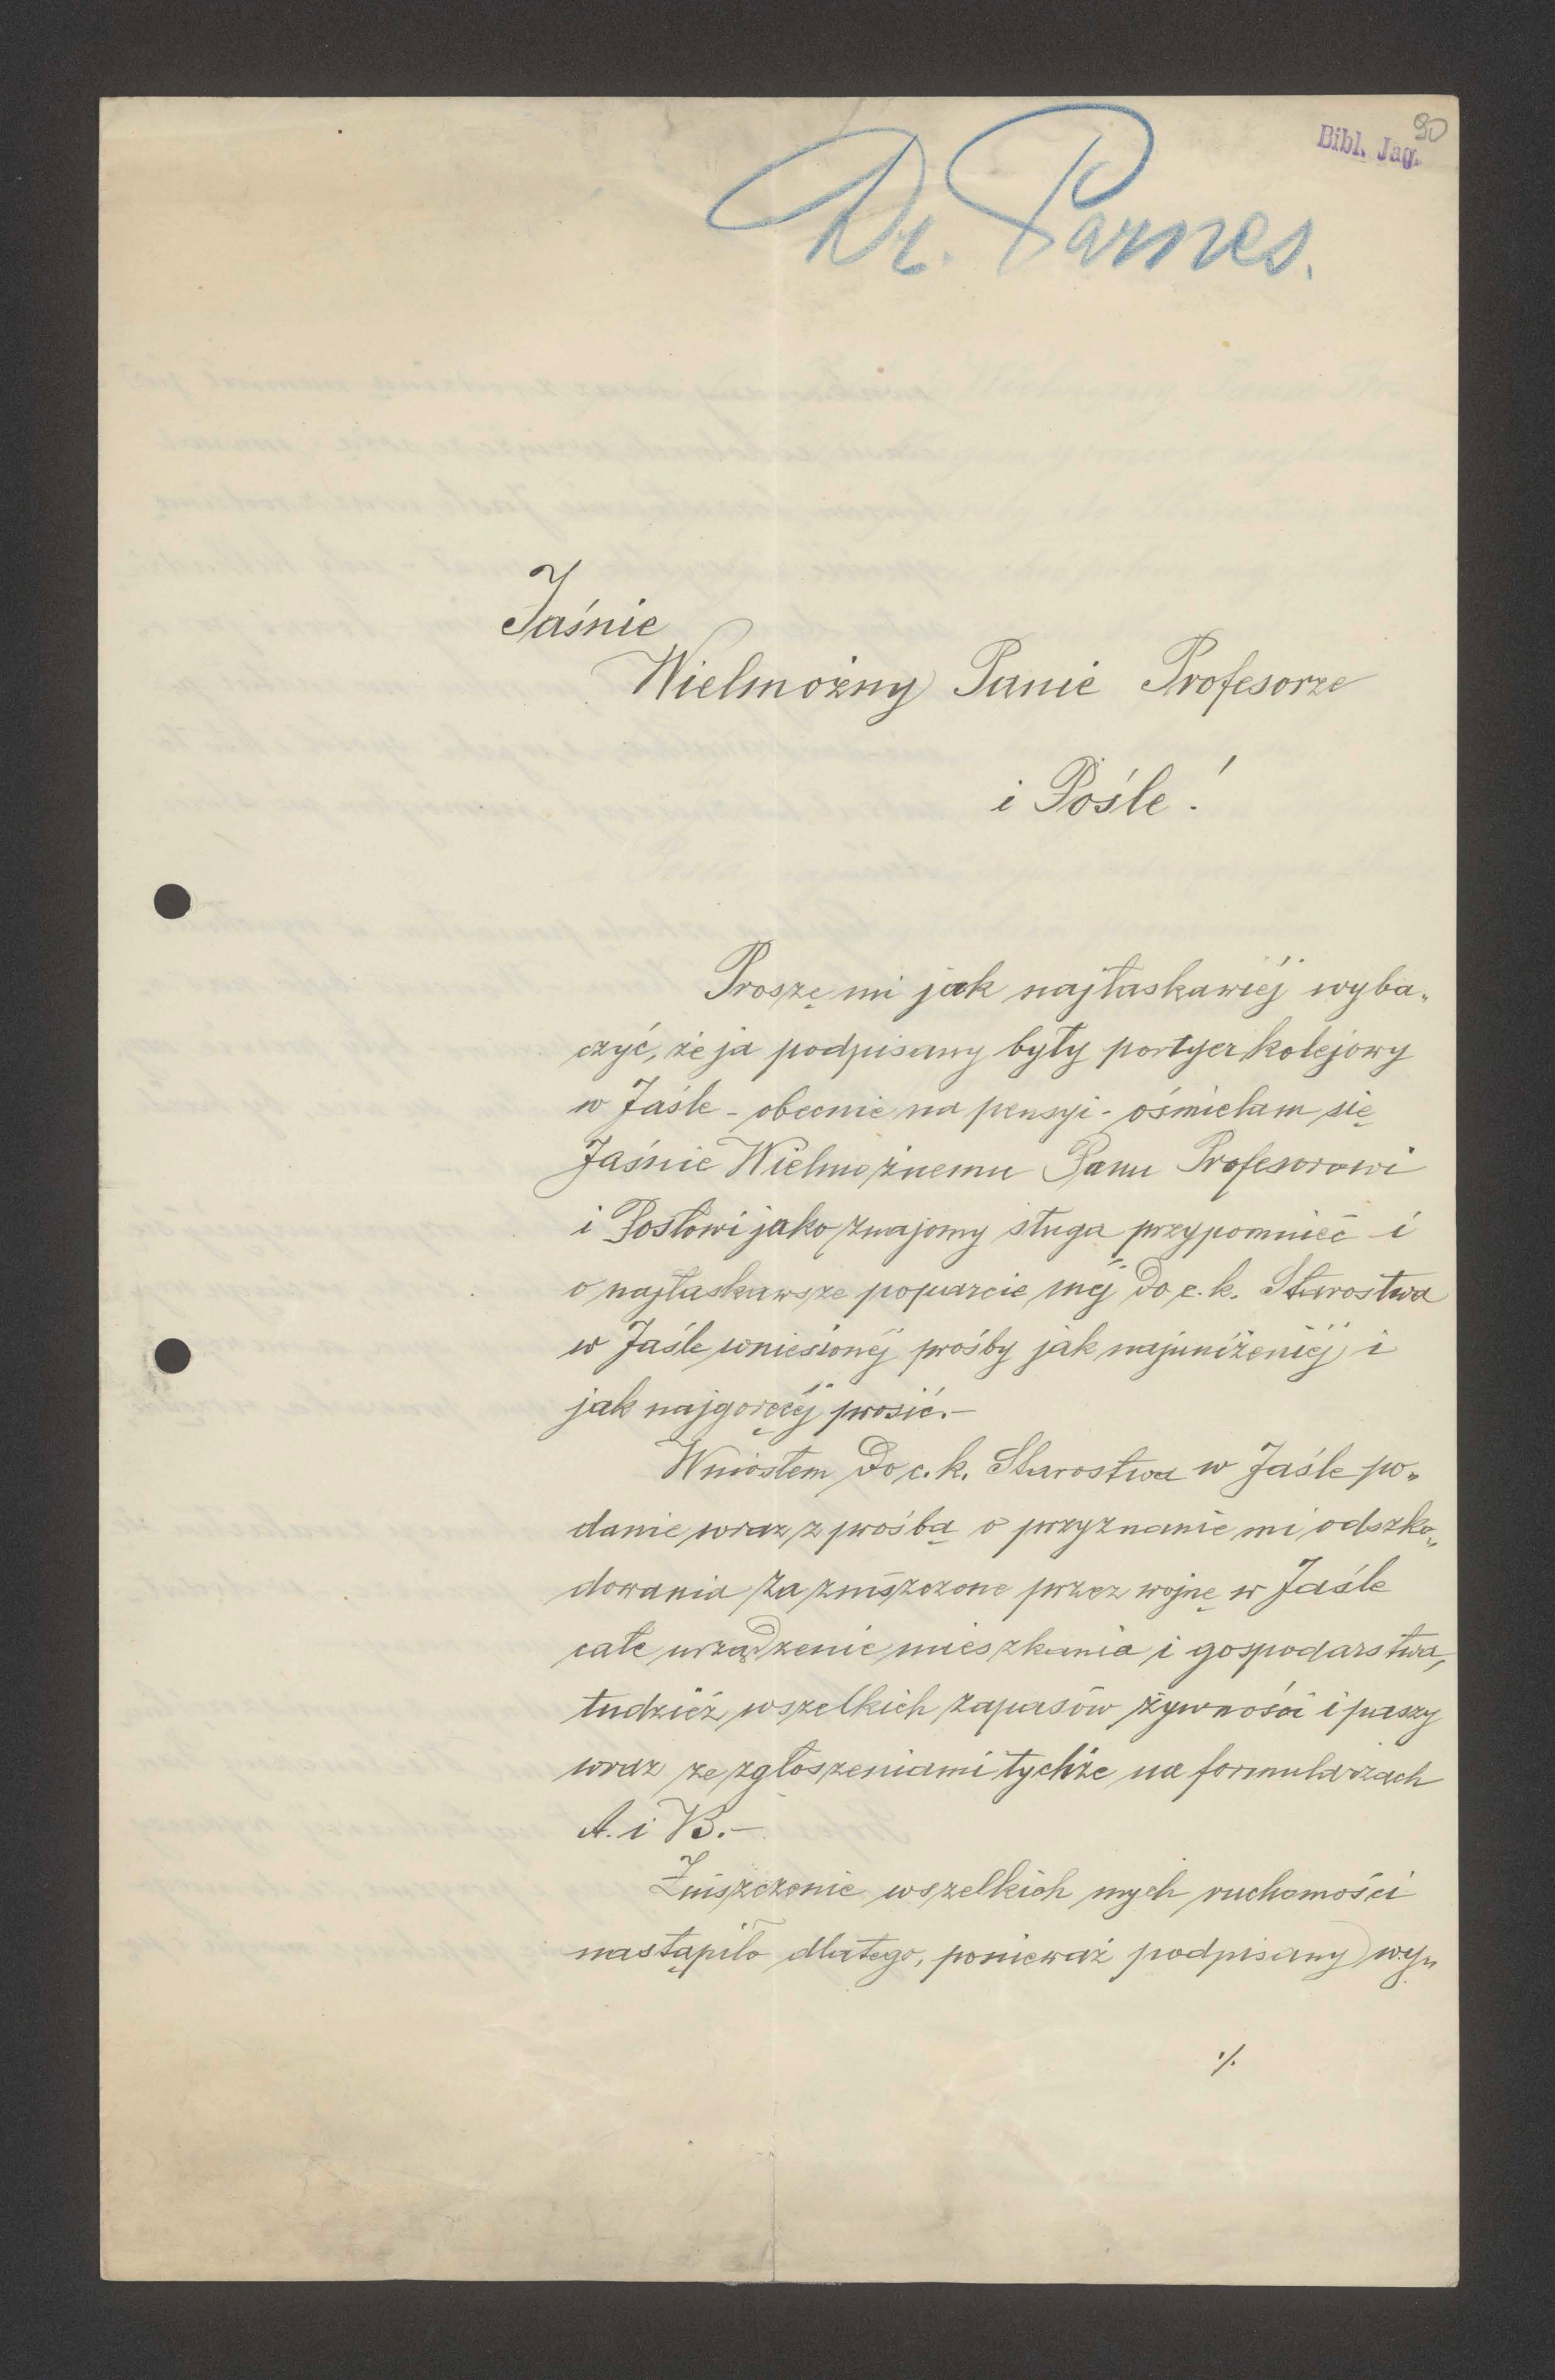 90
Bibl. Jag.
Dr. Parnes.
Jaśnie
Wielmożny Panie Profesorze
i Pośle!
Proszę mi jak najłaskawiéj wyba„
czyć, że ja podpisany były portyer kolejowy
w Jaśle - obecnie na pensyi - ośmielam się
Jaśnie Wielmożnemu Panu Profesorowi
i Posłowi jako znajomy sługa przypomnieć i
o najłaskawsze poparcie méj do c. k. Starostwa
w Jaśle wniesionéj prośby jak najuniżeniéj i
jak najgoręcéj prosić.-
Wniosłem do c. k. Starostwa w Jaśle po„
danie wraz z prośbą o przyznanie mi odszko„
dowania za zniszczone przez wojnę w Jaśle
całe urządzenie mieszkania i gospodarstwa,
tudzież wszelkich zapasów żywności i paszy
wraz ze zgłoszeniami tychże na formularzach
A. i B.-
Zniszczenie wszelkich mych ruchomości
nastąpiło dlatego, ponieważ podpisany wy„
./.